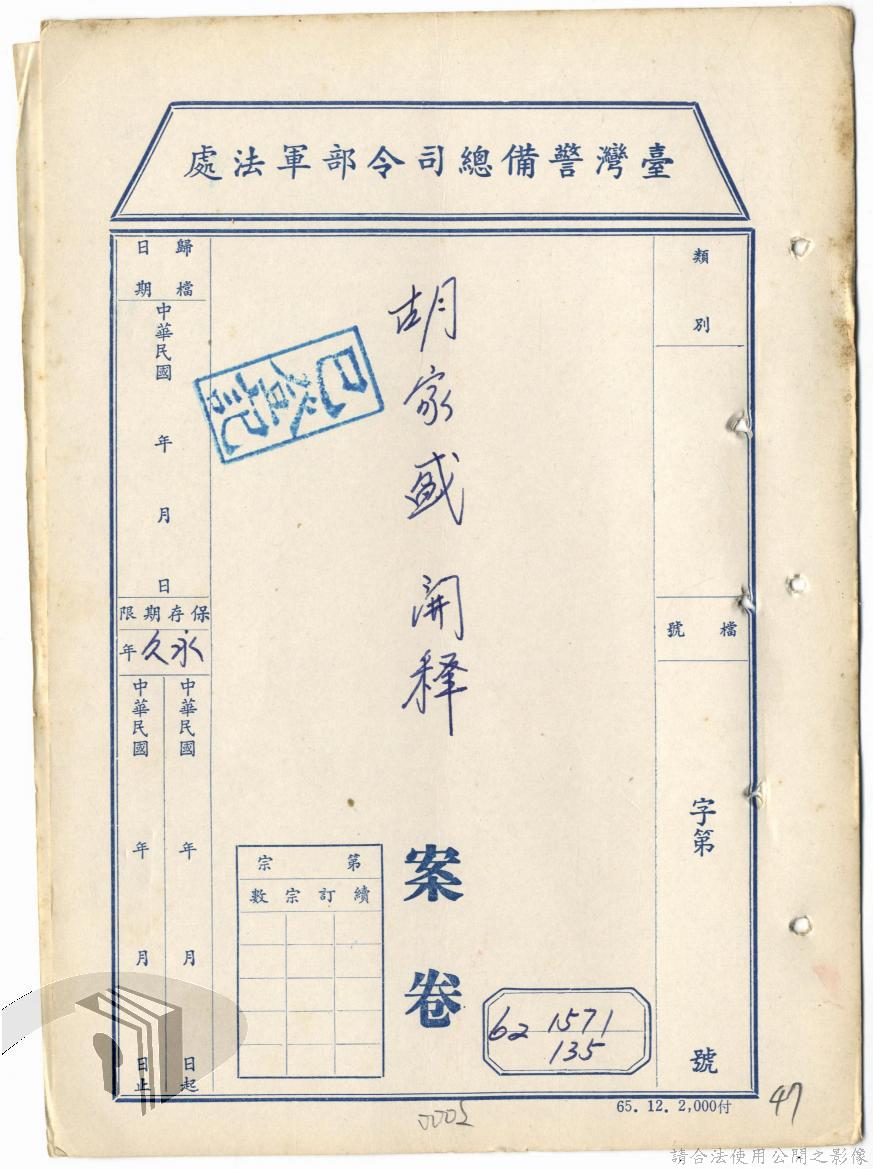 臺灣警備總司令部軍法處
類別
檔號
字第
號
胡家盛開释
案卷
已登記
歸檔日期
中華民國
年
月
日
保存期限
永久年
中華民國
年
月
日起
中華民國
年
月
日止
第宗
續訂宗數
62 1571
135
65. 12. 2,000付
47
0005
請合法使用公開之影像